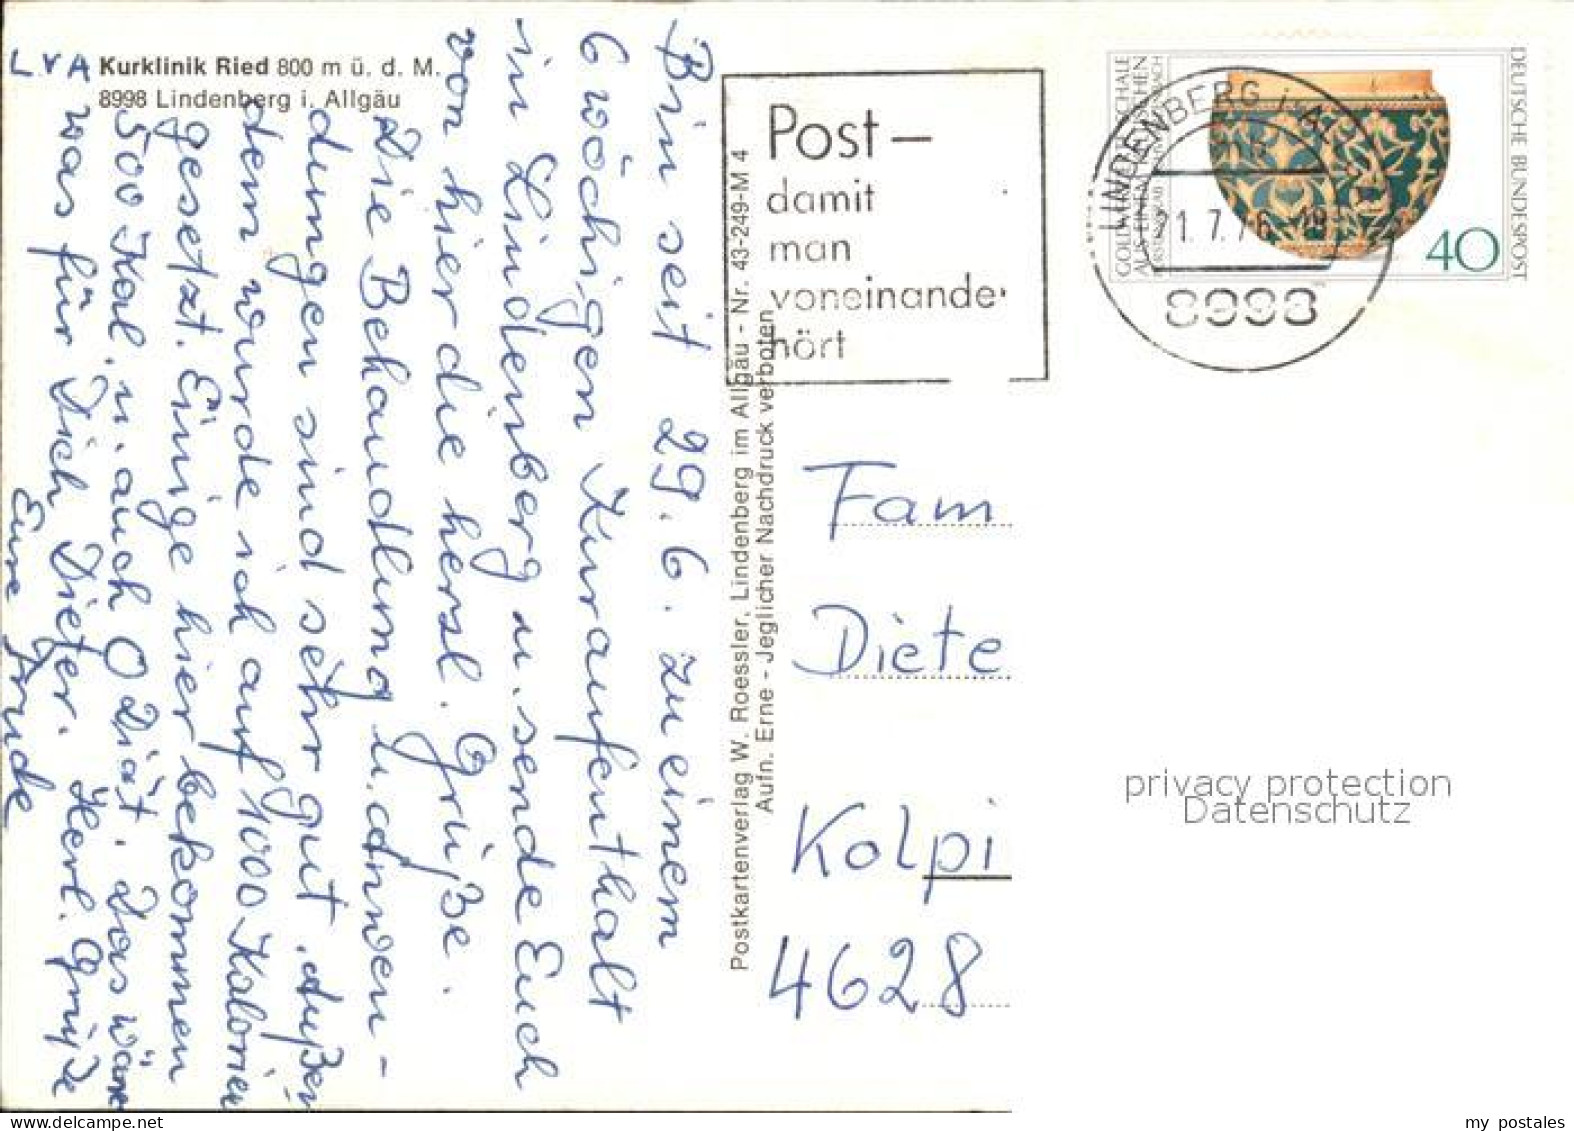 LVA Kurklinik Ried 800 m ü. d. M.
8998 Lindenberg i. Allgäu
Bin seit 29.6. zu einem
6 wöchigen Kuraufenthalt
in Lindenberg u. sende Euch
von hier die herzl. Grüße.
Die Behandlung u. Anwen-
dungen sind sehr gut. Außer
dem wurde ich auf 1000 Kalorien
gesetzt. Einige hier bekommen
500 Kal. u. auch 0 Diät. Das wäre
was für Dich Dieter. Herzl. Grüße
Eure Trude
Postkartenverlag W. Roessler, Lindenberg im Allgäu - Nr. 43-249-M 4
Aufn. Erne - Jeglicher Nachdruck verboten
Post –
damit
man
voneinander
hört
LINDENBERG i. AL
21.7.76 - 18
8998
GOLD SCHALE
AUS EINEM CHEN
DEUTSCHE BUNDESPOST
40
Fam
Diete
Kolpi
4628
privacy protection
Datenschutz
www.delcampe.net
my_postales